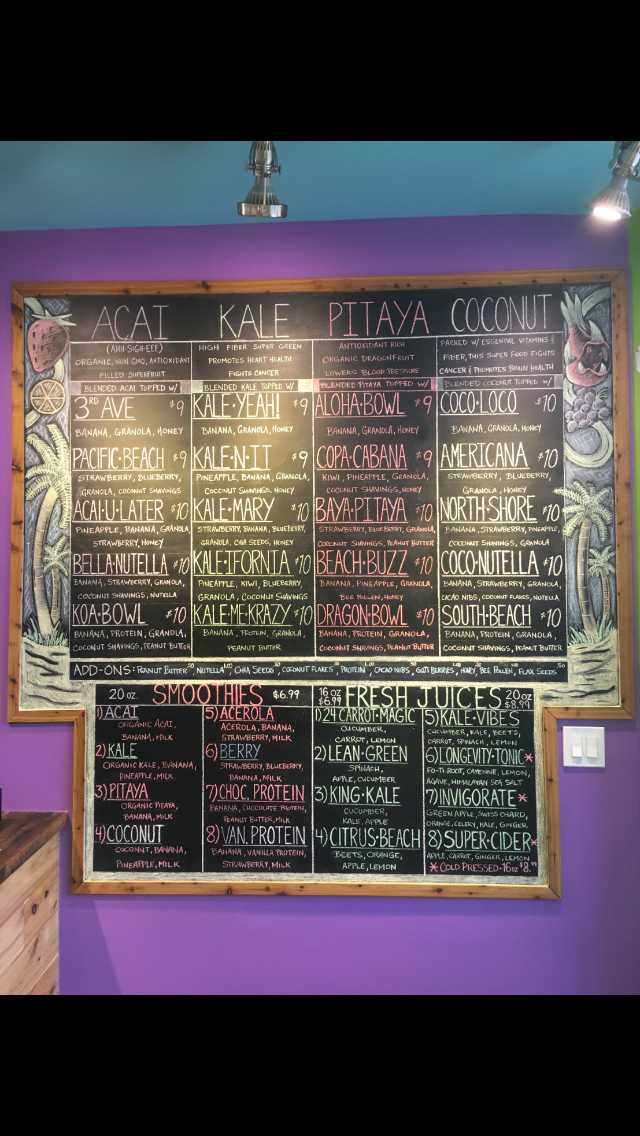 ACAI
(AHH SIGH-EEE)
ORGANIC, NON GMO, ANTIOXIDANT
FILLED SUPERFRUIT
BLENDED ACAI TOPPED W/
3RD AVE $9
BANANA, GRANOLA, HONEY
PACIFIC·BEACH $9
STRAWBERRY, BLUEBERRY,
GRANOLA, COCONUT SHAVINGS
ACAI·U·LATER $10
PINEAPPLE, BANANA, GRANOLA,
STRAWBERRY, HONEY
BELLA·NUTELLA $10
BANANA, STRAWBERRY, GRANOLA,
COCONUT SHAVINGS, NUTELLA
KOA·BOWL $10
BANANA, PROTEIN, GRANOLA,
COCONUT SHAVINGS, PEANUT BUTTER
KALE
HIGH FIBER SUPER GREEN
PROMOTES HEART HEALTH
FIGHTS CANCER
BLENDED KALE TOPPED W/
KALE·YEAH! $9
BANANA, GRANOLA, HONEY
KALE·N·IT $9
PINEAPPLE, BANANA, GRANOLA,
COCONUT SHAVINGS, HONEY
KALE·MARY $10
STRAWBERRY, BANANA, BLUEBERRY,
GRANOLA, CHIA SEEDS, HONEY
KALE·IFORNIA $10
PINEAPPLE, KIWI, BLUEBERRY,
GRANOLA, COCONUT SHAVINGS
KALE·ME·KRAZY $10
BANANA, PROTEIN, GRANOLA,
PEANUT BUTTER
PITAYA
ANTIOXIDANT RICH
ORGANIC DRAGONFRUIT
LOWERS BLOOD PRESSURE
BLENDED PITAYA TOPPED W/
ALOHA·BOWL $9
BANANA, GRANOLA, HONEY
COPA·CABANA $9
KIWI, PINEAPPLE, GRANOLA,
COCONUT SHAVINGS, HONEY
BAYA·PITAYA $10
STRAWBERRY, BLUEBERRY, GRANOLA,
COCONUT SHAVINGS, PEANUT BUTTER
BEACH·BUZZ $10
BANANA, PINEAPPLE, GRANOLA,
BEE POLLEN, HONEY
DRAGON·BOWL $10
BANANA, PROTEIN, GRANOLA,
COCONUT SHAVINGS, PEANUT BUTTER
COCONUT
PACKED W/ ESSENTIAL VITAMINS &
FIBER, THIS SUPER FOOD FIGHTS
CANCER & PROMOTES BRAIN HEALTH
BLENDED COCONUT TOPPED W/
COCO·LOCO $10
BANANA, GRANOLA, HONEY
AMERICANA $10
STRAWBERRY, BLUEBERRY,
GRANOLA, HONEY
NORTH·SHORE $10
BANANA, STRAWBERRY, PINEAPPLE,
COCONUT SHAVINGS, GRANOLA
COCO·NUTELLA $10
BANANA, STRAWBERRY, GRANOLA,
CACAO NIBS, COCONUT FLAKES, NUTELLA
SOUTH·BEACH $10
BANANA, PROTEIN, GRANOLA,
COCONUT SHAVINGS, PEANUT BUTTER
ADD-ONS: PEANUT BUTTER, NUTELLA, CHIA SEEDS, COCONUT FLAKES, PROTEIN, CACAO NIBS, GOJI BERRIES, HONEY, BEE POLLEN, FLAX SEEDS
20 OZ. SMOOTHIES $6.99
1) ACAI
ORGANIC ACAI,
BANANA, MILK
2) KALE
ORGANIC KALE, BANANA,
PINEAPPLE, MILK
3) PITAYA
ORGANIC PITAYA,
BANANA, MILK
4) COCONUT
COCONUT, BANANA,
PINEAPPLE, MILK
5) ACEROLA
ACEROLA, BANANA,
STRAWBERRY, MILK
6) BERRY
STRAWBERRY, BLUEBERRY,
BANANA, MILK
7) CHOC. PROTEIN
BANANA, CHOCOLATE PROTEIN,
PEANUT BUTTER, MILK
8) VAN. PROTEIN
BANANA, VANILLA PROTEIN,
STRAWBERRY, MILK
16 OZ $6.99 FRESH JUICES 20 OZ $8.99
1) 24 CARROT·MAGIC
CUCUMBER,
CARROT, LEMON
2) LEAN·GREEN
SPINACH,
APPLE, CUCUMBER
3) KING·KALE
CUCUMBER,
KALE, APPLE
4) CITRUS·BEACH
BEETS, ORANGE,
APPLE, LEMON
5) KALE·VIBES
CUCUMBER, KALE, BEETS,
CARROT, SPINACH, LEMON
6) LONGEVITY·TONIC*
FO-TI ROOT, CAYENNE, LEMON,
AGAVE, HIMALAYAN SEA SALT
7) INVIGORATE*
GREEN APPLE, SWISS CHARD,
ORANGE, CELERY, KALE, GINGER
8) SUPER·CIDER*
APPLE, CARROT, GINGER, LEMON
*COLD PRESSED-16 OZ $8.99